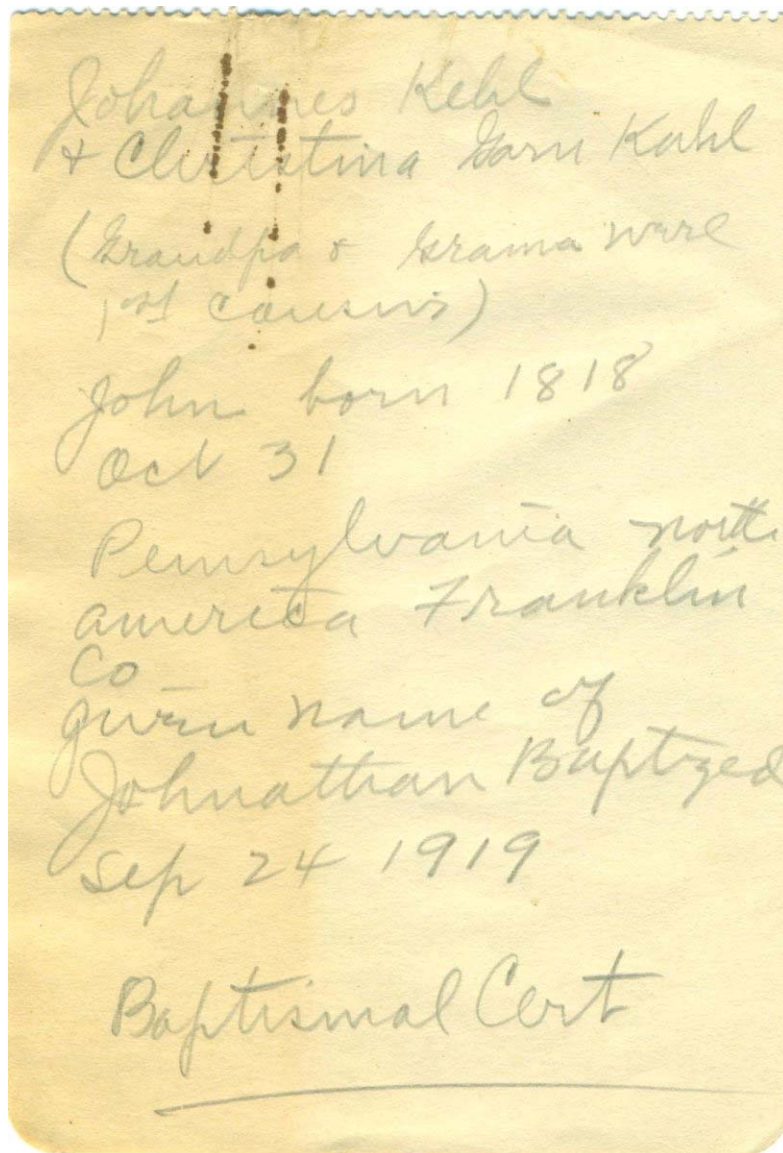 Johannes Kehl
& Christina Garn Kahl
(Grandpa & Grama were
1st cousins)
John born 1818
Oct 31
Pennsylvania north
america Franklin
Co
given name of
Johnathan Baptized
Sep 24 1919
Baptismal Cert